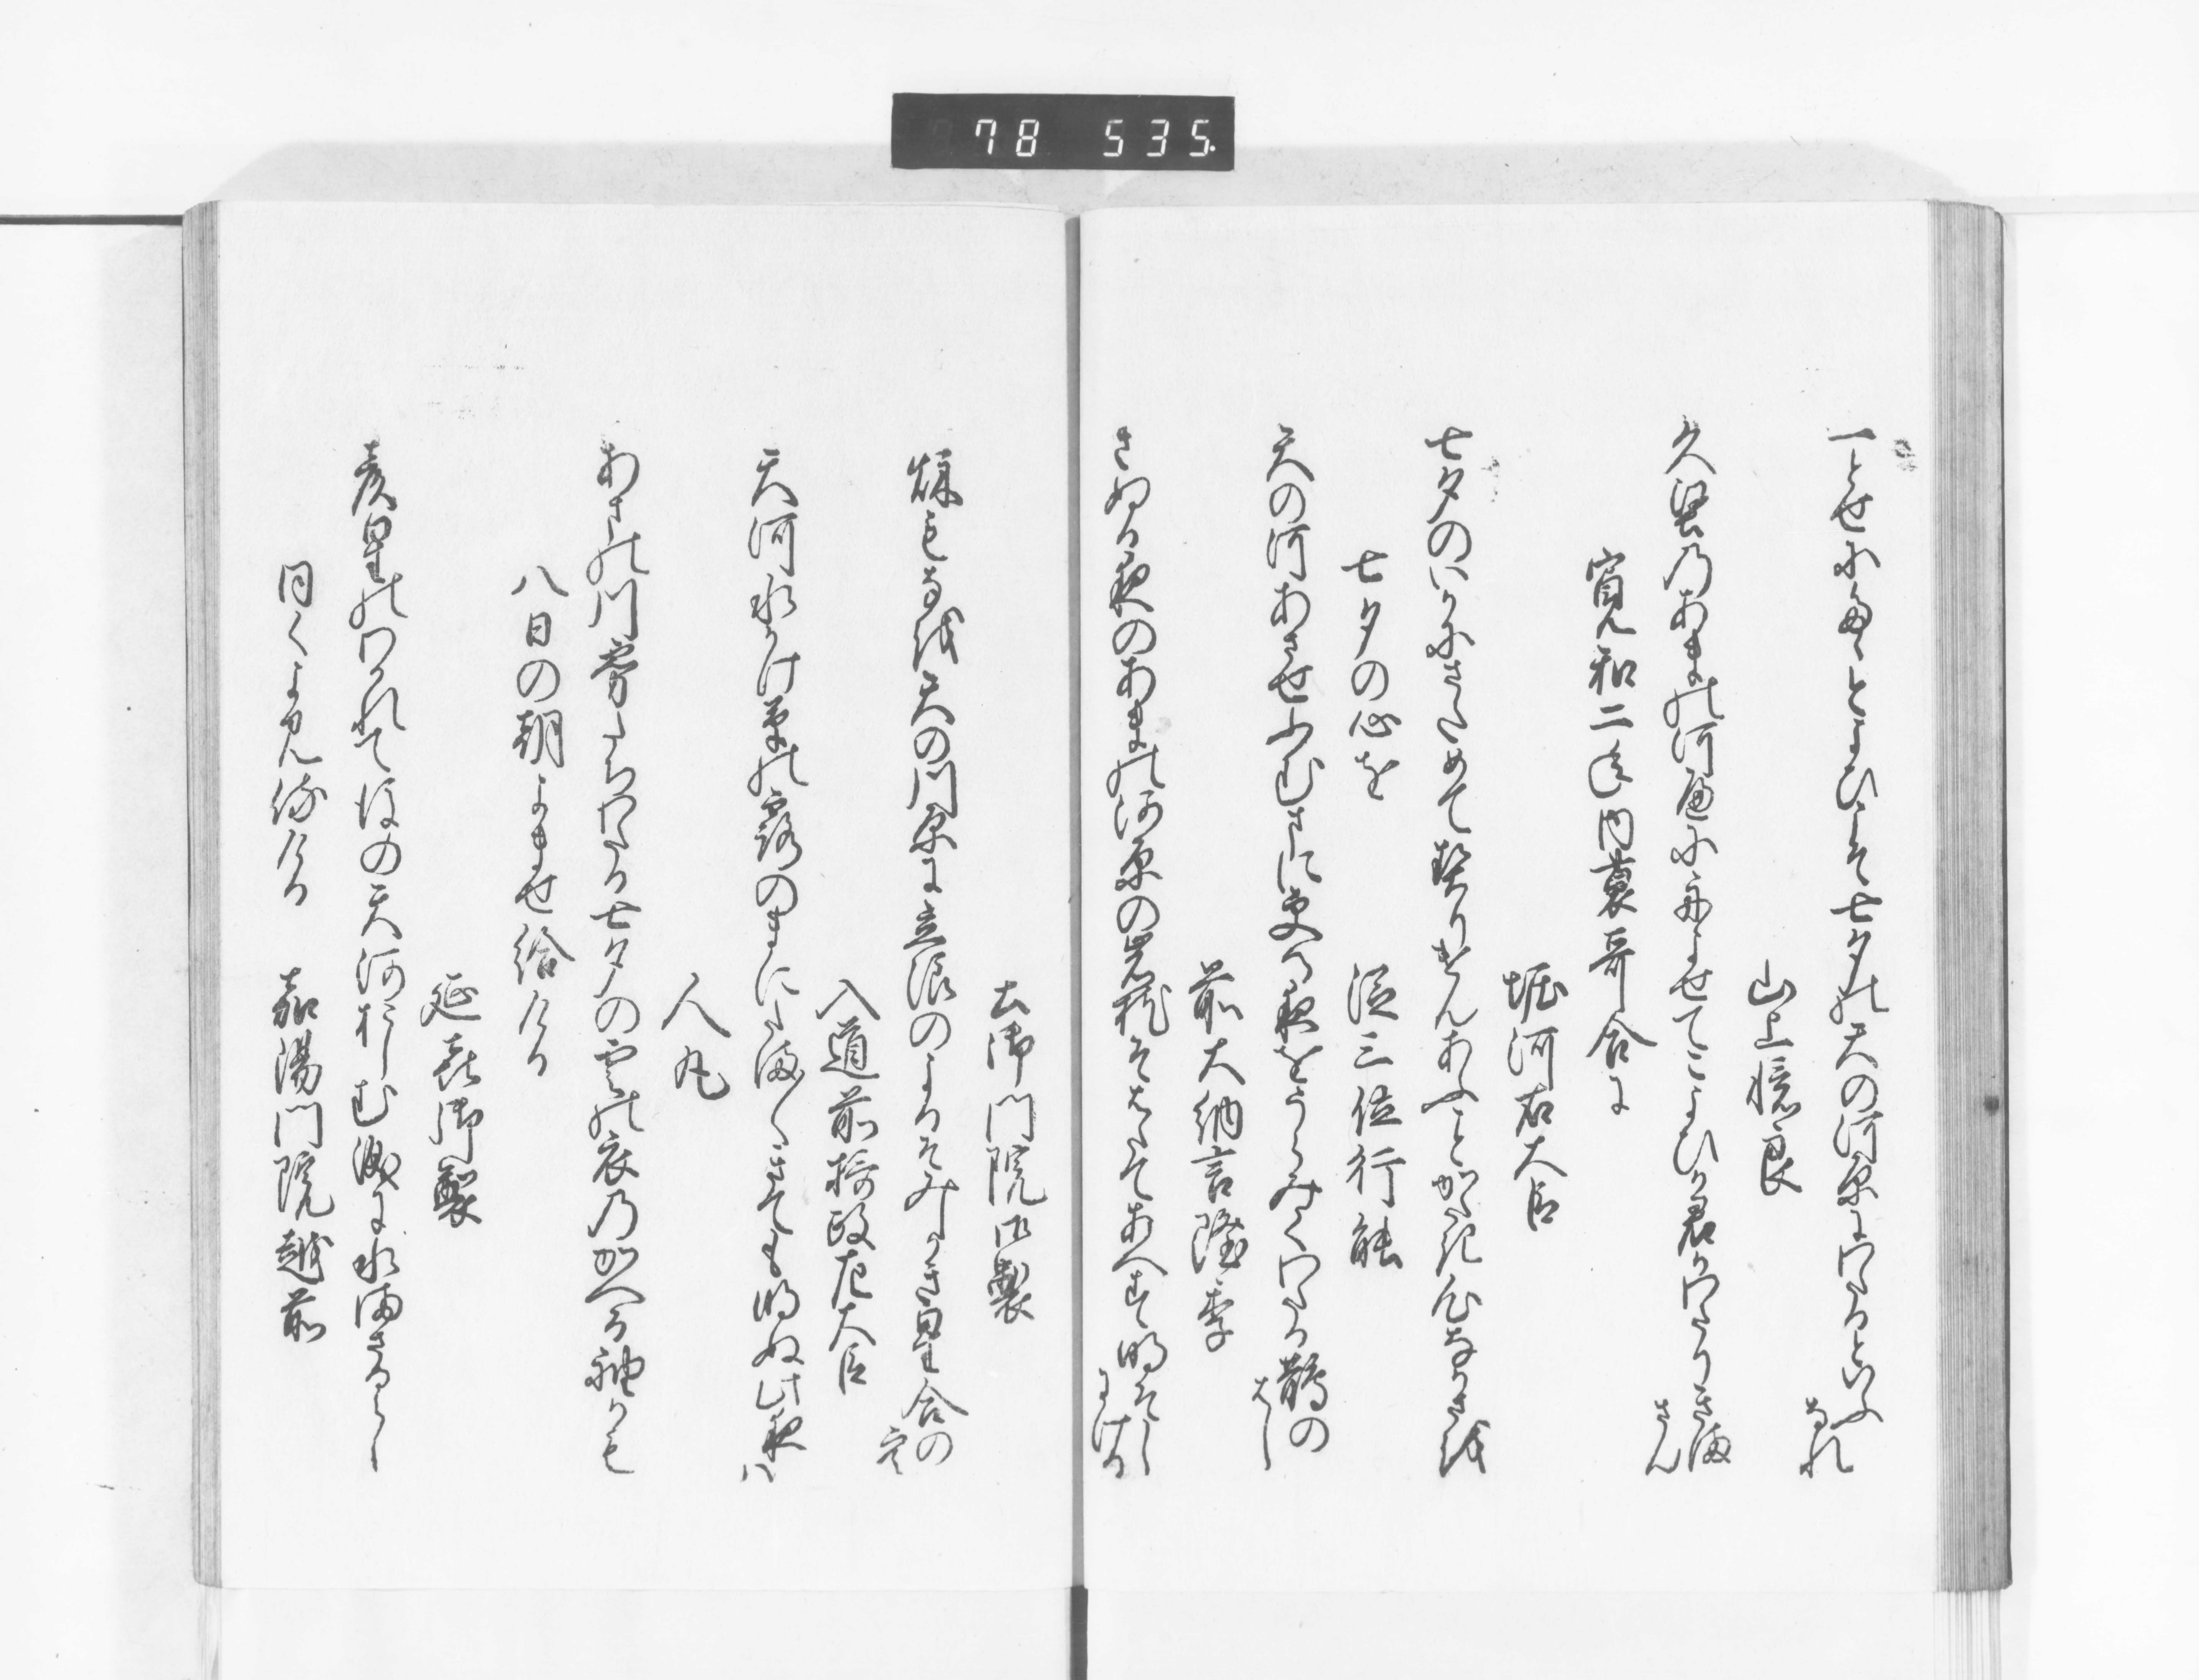 78 535.
一とせにたゝこよひこそ七夕の天の河原にわたるといふなれ
山上憶良
久堅のあまの河辺に舟よせてこよひか君かわたりきまさん
寛和二年内裏哥合に
堀河右大臣
七夕のいかにさためて契りけんあふことかたき心なかさを
七夕の心を
従三位行能
天の河あさせふむまに更る夜をうらみてわたる鵲のはし
前大納言隆季
さぬる夜のあまの河原の岩枕そはたてあへす明そしにける
土御門院御製
秋もなを天の川原に立浪のよるそみしかき星合の空
入道前摂政左大臣
天河水かけ草の露のまにたま〱きても明ぬ此夜は
人丸
あまの川霧たちわたる七夕の雲の衣のかへる袖かも
八日の朝よませ給ける
延喜御製
彦星のわかれて後の天河おしむ涙に水まさるらし
同くよみ侍ける
嘉陽門院越前